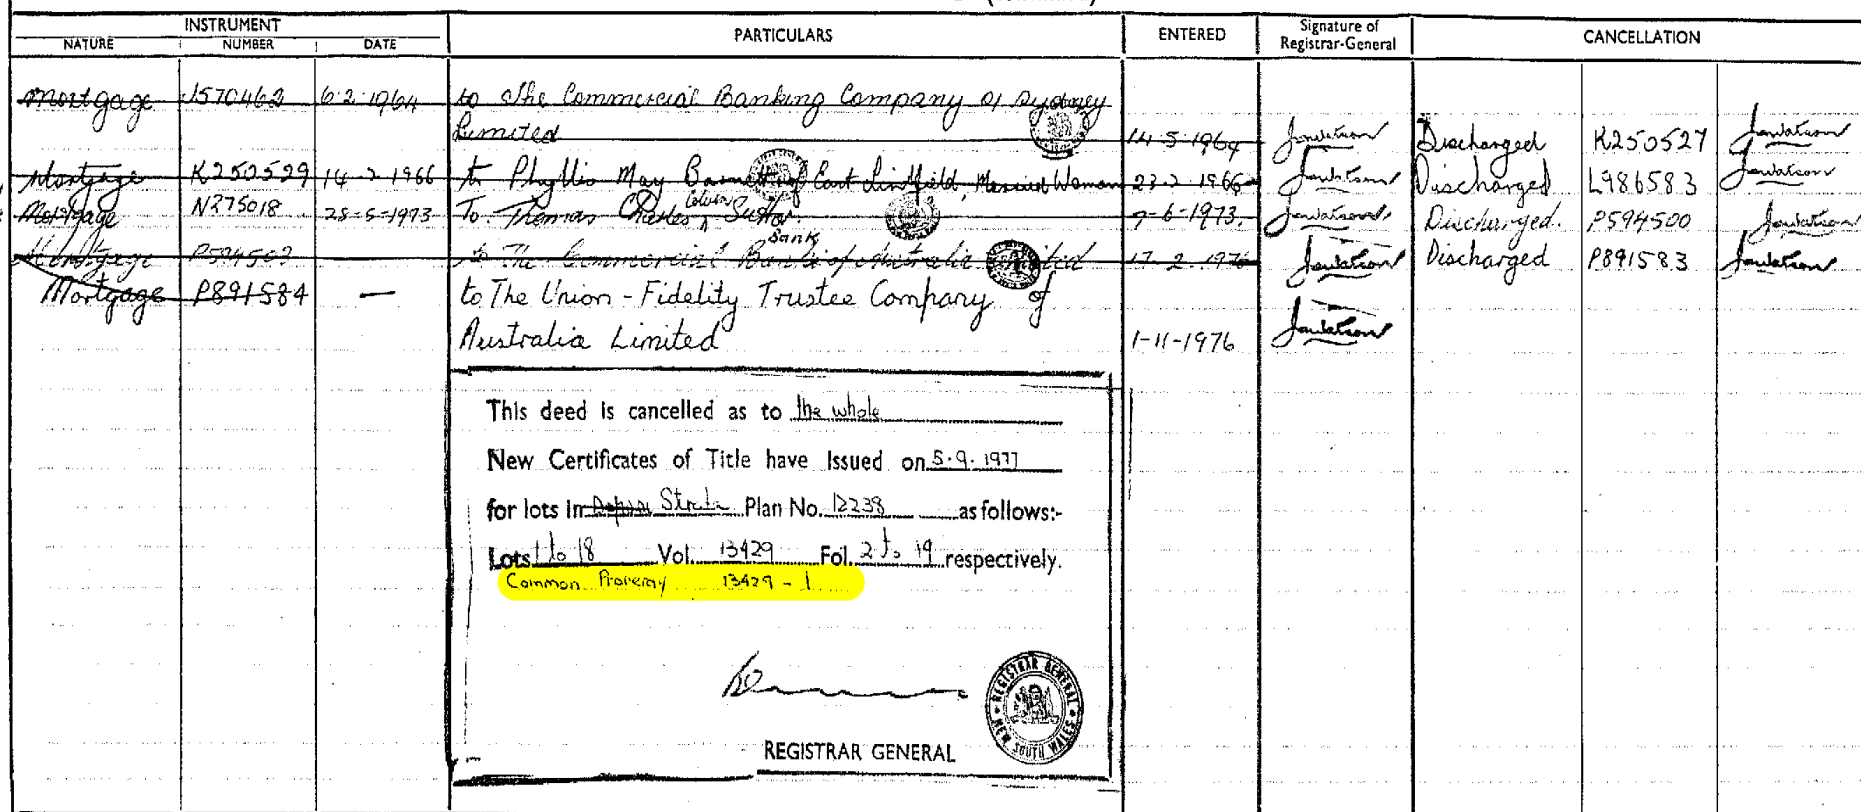 INSTRUMENT
NATURE NUMBER DATE PARTICULARS ENTERED Signature of Registrar-General CANCELLATION
Mortgage J570462 6·2·1964 to The Commercial Banking Company of Sydney
Limited 14-5-1964 Discharged K250527
Mortgage K250529 14-2-1966 to Phyllis May of East Lindfield, Married Woman 23-2-1966 Discharged L986583
Mortgage N275018 28-5-1973 To Thomas Charles 7-6-1973. Discharged. P594500
Mortgage to The Commercial Bank of Australia Limited 17-2-1976 Discharged P891583
Bank
Mortgage P891584 — to The Union-Fidelity Trustee Company of
Australia Limited 1-11-1976
This deed is cancelled as to the whole
New Certificates of Title have Issued on 5·9·1977
for lots in Strata Plan No. 12238 as follows:-
Lots 1 to 18 Vol. 13429 Fol. 2 to 19 respectively.
Common Property 13429 - 1
REGISTRAR GENERAL
NEW SOUTH WALES
REGISTRAR GENERAL